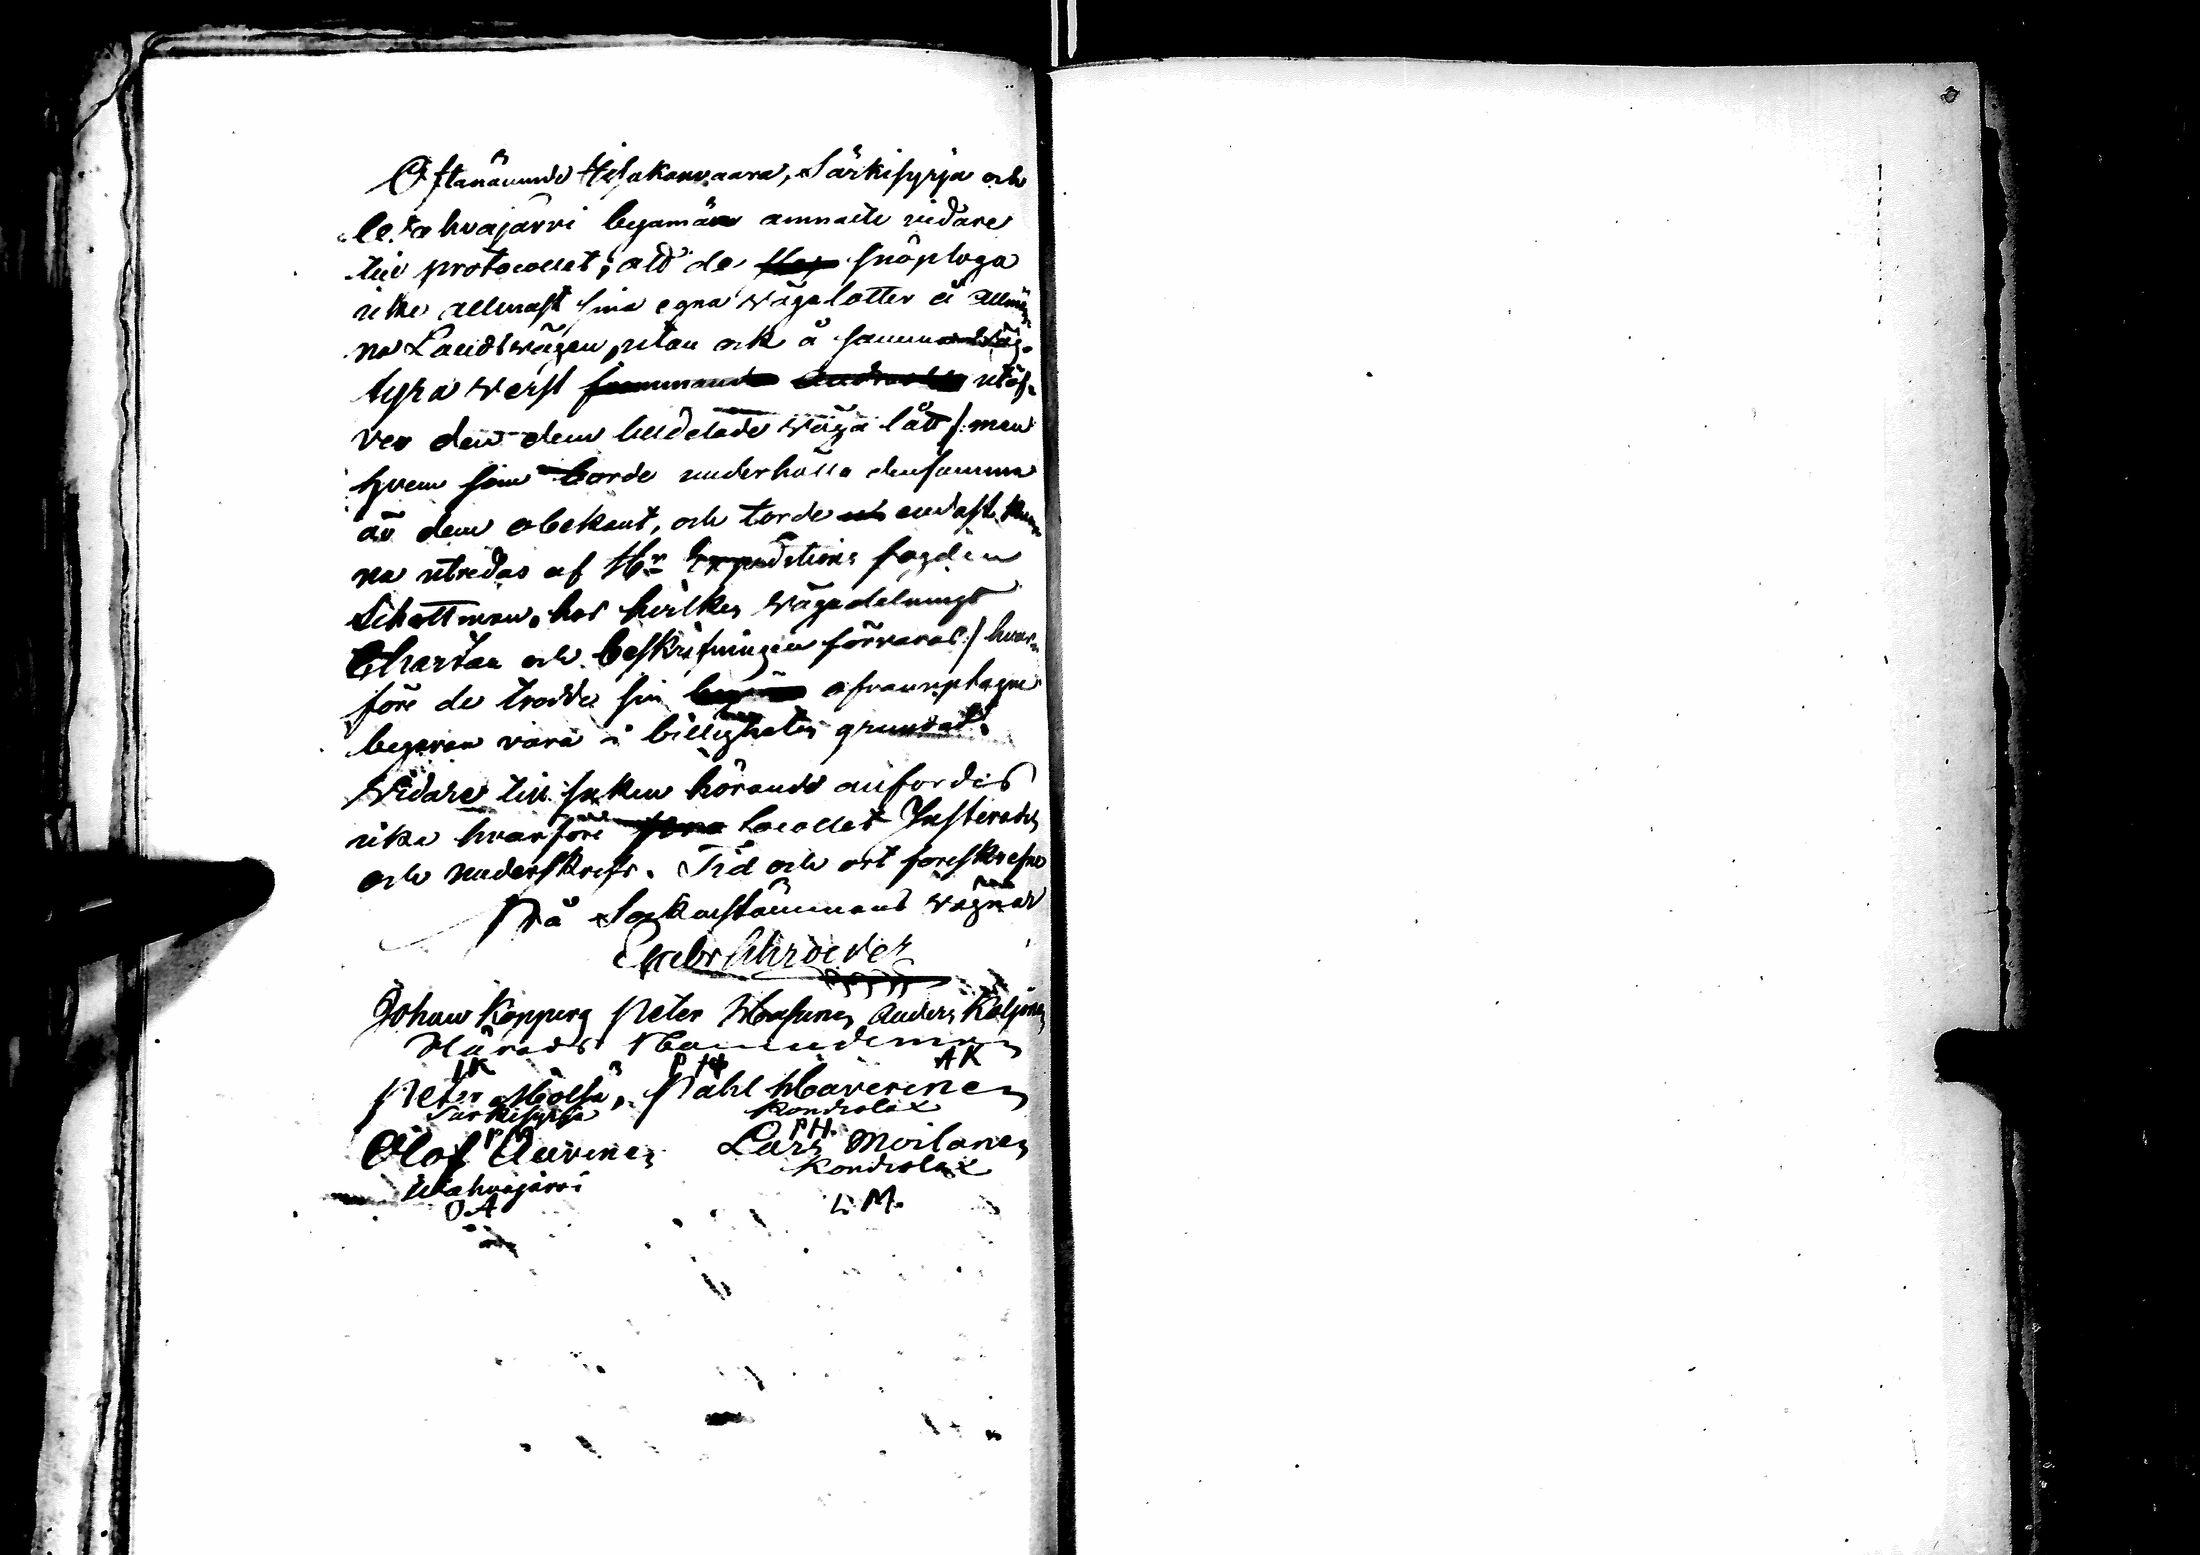 Oftanämnde Selakanvaara, Särkisyrjä och
Leukahvajärvi byamän anmälte vidare
till protocollet, att de snöploga
icke allenast sina egna vägalotter å allmän-
na Landsvägen, utan ock å samma väg
tyra werst utöf-
ver den dem tilldelade väga lått /: men
hvem som borde underhålla densamma
är dem obekant, och torde endast kun-
na utredas af Hr Expeditions fogden
Schottman, hos hvilken vägadelnings
Chartan och beskrifningen förvaras :/ hvar-
före de trodde sin ofvanuptagne
begäran vara i billigheten grundat.
Widare till saken hörande anfördes
icke hvarföre Protocollet Justerades
och underskrefs. Tid och ort föreskrefne
På Sockenstämmans vägnar
Gabr Ahroever
Johan Kopperg Peter Anders Koljonen
Härads Nämndemän
I K P H A K
Peter Mölsä, Pahl Haverinen
Särkisyrjä Kondiolax
P M P H.
Olof Auvinen Lars Moilanen
Utkahvajärvi Kondiolax
O A L. M.